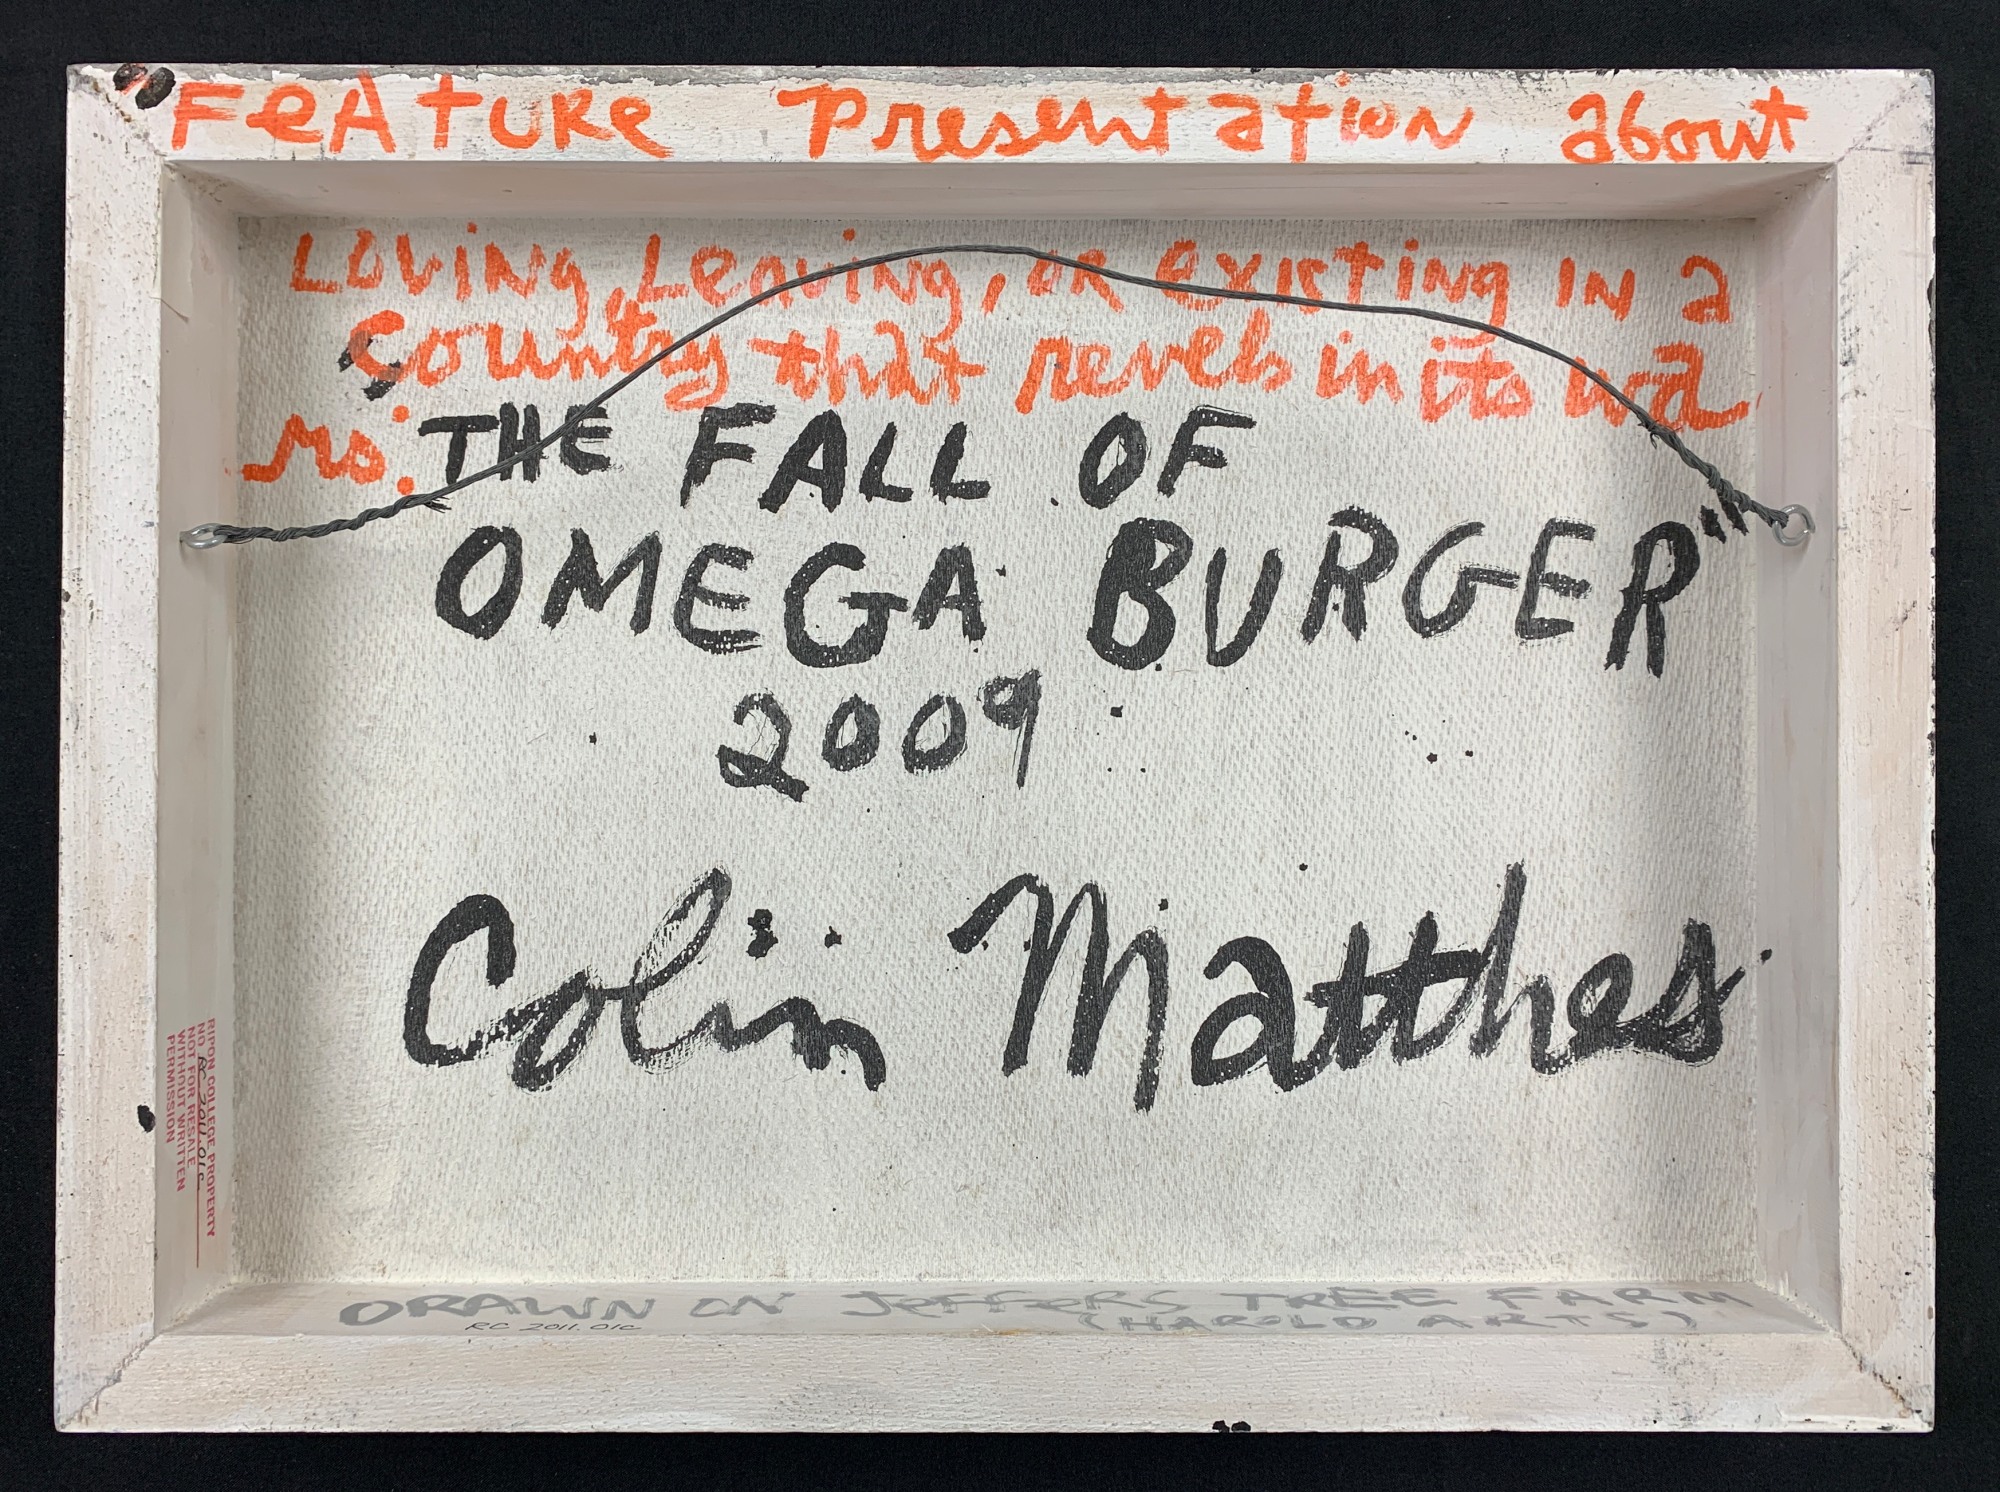 "FeATURe Presentation about
Loving, Leaving, or existing in a
country that revels in its wa
rs:
"THE FALL OF
OMEGA BURGER"
2009
Colin Matthes
RIPON COLLEGE PROPERTY
NO RC 2011.01C
NOT FOR RESALE
WITHOUT WRITTEN
PERMISSION
DRAWN ON JeFFeRS TREE FARM
(HAROLD ARTS)
RC 2011.01C